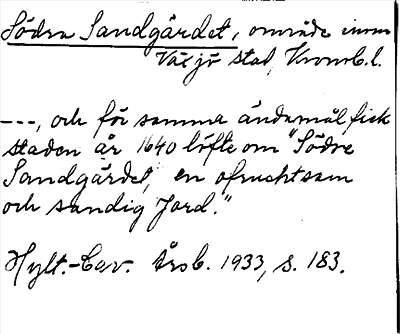 Södra Sandgärdet, område inom
Växjö stad, Kronob. l.
---, och för samma ändamål fick
staden år 1640 löfte om "Södre
Sandgärdet, en ofruchtsam
och sandig Jord."
Hylt.-Cav. Årsb. 1933, s. 183.